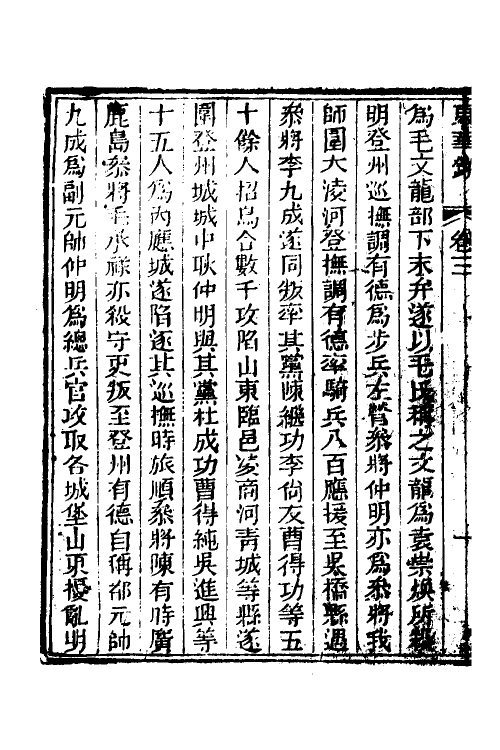 東華錄 卷三 十
為毛文龍部下末弁遂以毛氏稱之文龍為袁崇煥所
明登州巡撫調有德為步兵左營叅將仲明亦為叅將我
師圍大凌河登撫調有德率騎兵八百應援至吳橋縣遇
叅將李九成遂同叛率其黨陳繼功李尙友曹得功等五
十餘人招烏合數千攻陷山東臨邑凌商河靑城等縣遂
圍登州城城中耿仲明與其黨杜成功曹得純吳進興等
十五人為內應城遂陷逐其巡撫時旅順叅將陳有時廣
鹿島叅將毛承祿亦殺守吏叛至登州有德自稱都元帥
九成為副元帥仲明為總兵官攻取各城堡山東擾亂明